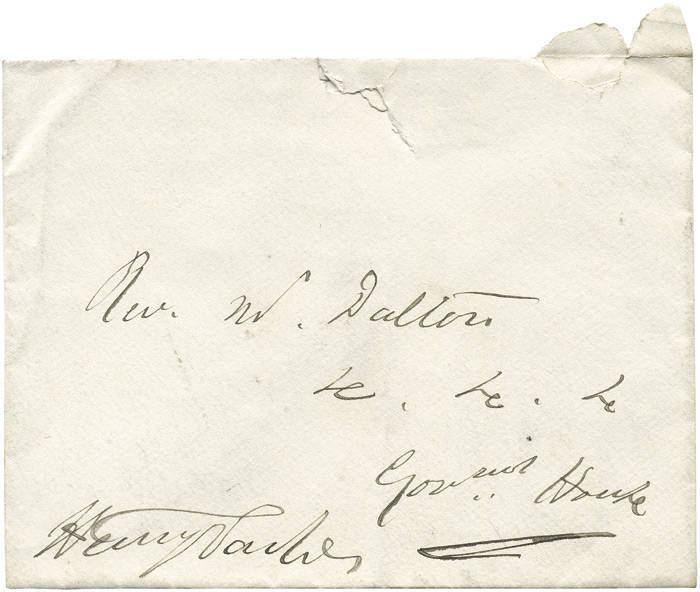 Rev. Mr. Dalton
&c. &c. &c
Govnmt House
Henry Parkes